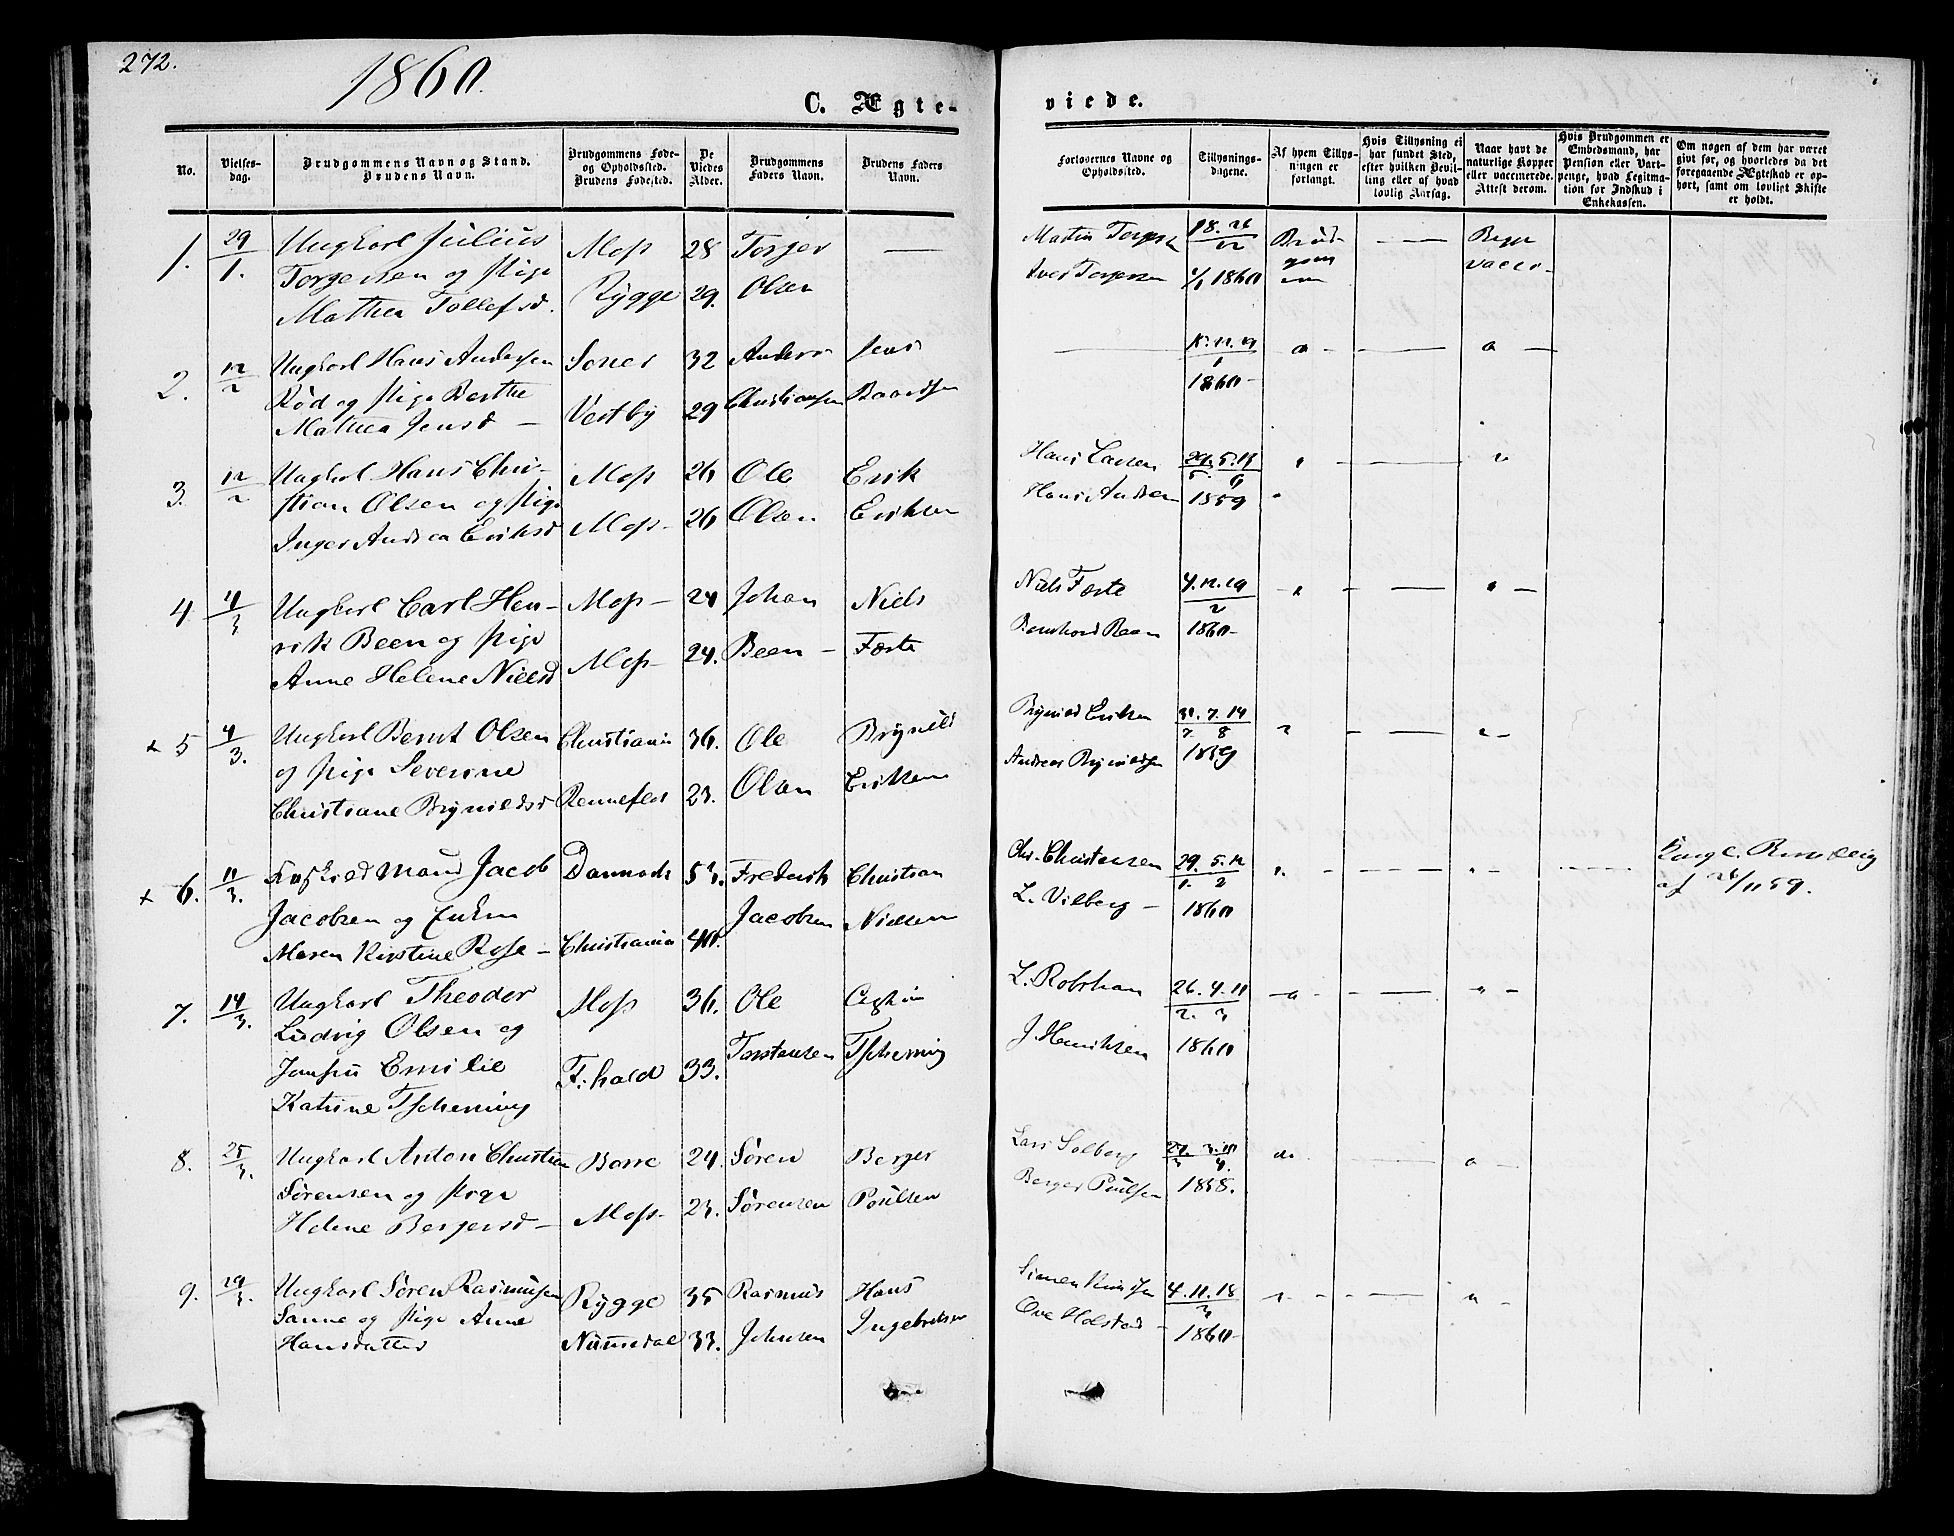 272.
1860.
C. Ægte-
viede.
No.
Vielses-
dag.
Brudgommens Navn og Stand.
Brudens Navn.
Brudgommens Føde-
og Opholdssted.
Brudens Fødested.
De
Viedes
Alder.
Brudgommens
Faders Navn.
Brudens Faders
Navn.
Forlovernes Navne og
Opholdssted.
Tillysnings-
dagene.
Af hvem Tillys-
ningen er
forlangt.
Hvis Tillysning ei
har fundet Sted,
efter hvilken Bevil-
ling eller af hvad
lovlig Aarsag.
Naar havt de
naturlige Kopper
eller vaccinerede.
Attest derom.
Hvis Brudgommen er
Embedsmand, har
Pension eller Vart-
penge, hvad Legitma-
tion for Indskud i
Enkekassen.
Om nogen af dem har været
givt før, og hvorledes da det
foregaaende Ægteskab er op-
hørt, samt om lovligt Skifte
er holdt.
1. 29/1. Ungkarl Julius
Torgersen og Pige
Mathea Tollefsd.
Moss
Rygge
28
29.
Torger
Olsen
—
Martin Torgers
Iver Torgersen
18. 26/12
1/1 1860
Brud-
gom
men
—
Begge
vacc.
2. 12/2 Ungkarl Hans Andersen
Rød og Pige Berthe
Mathea Jensd —
Soner
Vestby
32
29
Anders
Christiansen
Jens
Baardsen
—
1860-
3. 12/2 Ungkarl Hans Chri-
stian Olsen og Pige
Inger Andrea Eriksd
Moss
Moss-
26
26
Ole
Olsen
Erik
Eriksen
Hans Larsen
Hans Andsen
1859
4 4/3 Ungkarl Carl Hen-
rik Been og Pige
Anne Helene Nielsd
Moss-
Moss-
24
24.
Johan
Been-
Niels
Førte
Niels Førte
Bernhard Been
4.12.19/2
1860-
x 5 4/3. Ungkarl Bernt Olsen
og Pige Severine
Christiane Brynildsd
Christiania
36.
23.
Ole
Olsen
Brynild
Eriksen
Brynild Eriksen
Andreas Brynildsen
31. 7. 14
7. 8
1859
x 6. 11/3. Mand Jacob
Jacobsen og Enken
Maren Kirstine Rose —
Danmark
Christiania
53.
40.
Frederik
Jacobsen
Christian
Nielsen
Chr. Christensen
L. Vilberg —
29. 5. 12
1. 2
1860
Kongl. Bevilling
af 26/11 59.
7. 14/3. Ungkarl Theodor
Ludvig Olsen og
Jomfru Emilie
Katrine Tscherning
Moss
F.hald
36.
33.
Ole
Torstensen
Tscherning
L. Robsham
J Henriksen
26. 4. 11
2. 3
1860
8. 25/3. Ungkarl Anton Christian
Sørensen og Pige
Helene Bergersd —
Borre
Moss-
24.
23.
Søren
Sørensen
Berger
Poulsen
Lars Solberg
Berger Poulsen
1858.
do
9. 29/3. Ungkarl Søren Rasmusen
Sanne og Pige Anne
Hansdatter
Rygge
Nummedal
35
33.
Rasmus
Johnsen
Hans
Ingebretsen
Simen Knudsen
Ove Holstad —
4. 11. 18/3
1860-